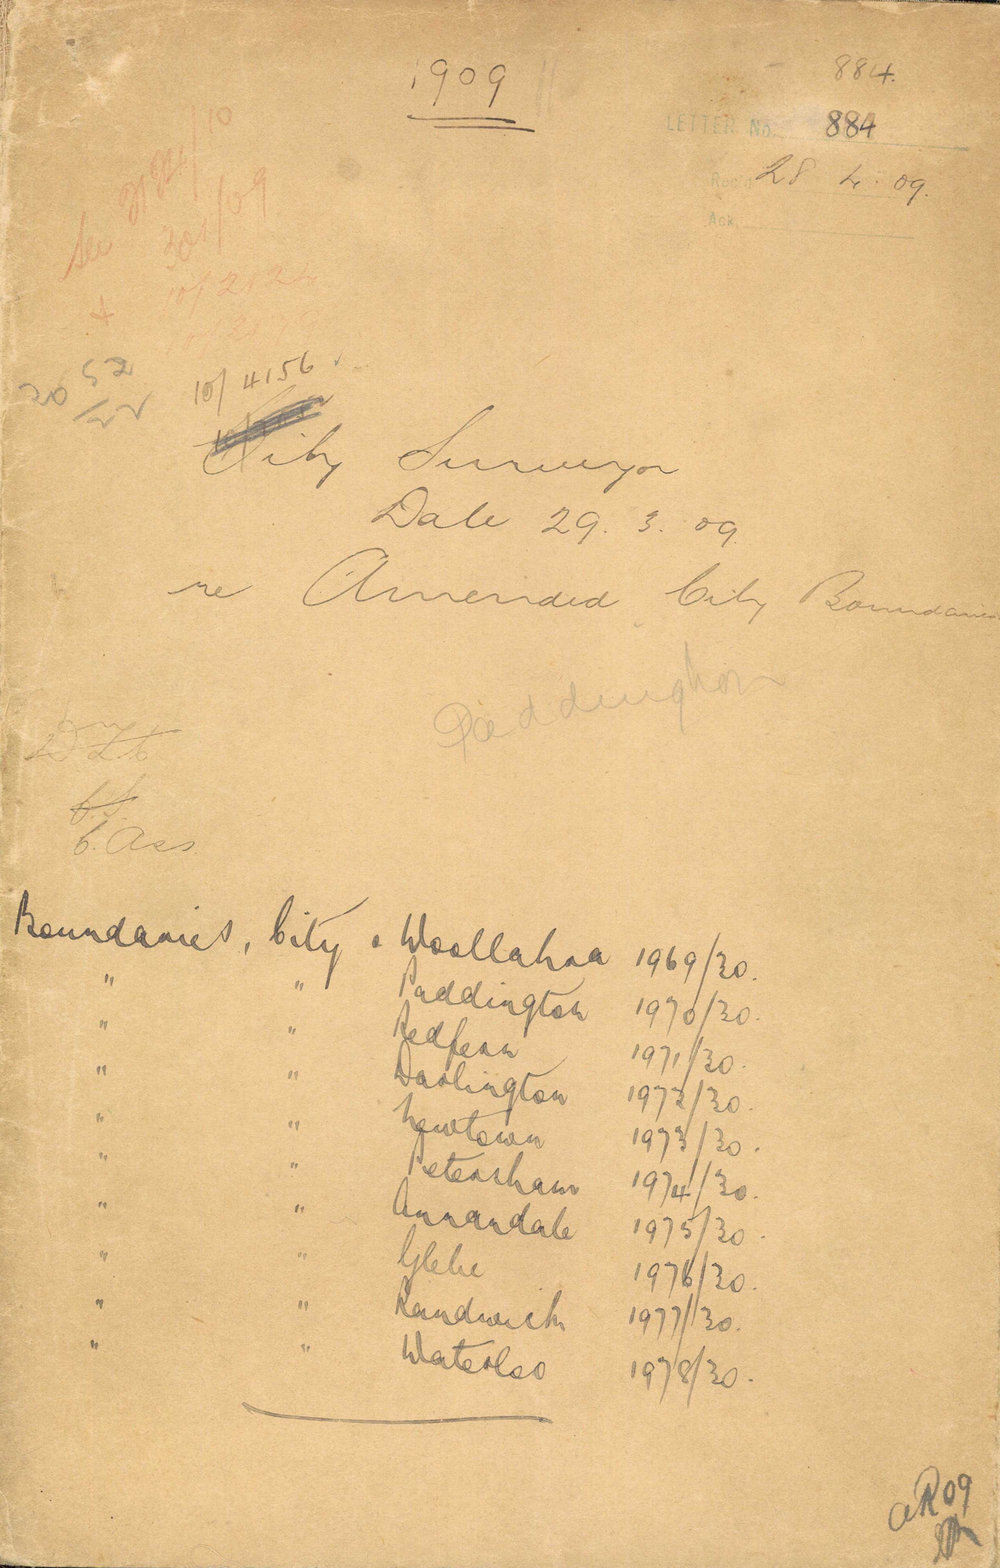 1909
884.
LETTER No. 884
Rec'd 28 4. 09.
Ack.
See
301/09
10/2124
+
20 52
/22
10/4156.
City Surveyor
Date 29. 3. 09
re Amended City Boundaries
Paddington
C.S.
C. Ass
Boundaries, City & Woollahra 1969/30.
" " Paddington 1970/30.
" " Redfern 1971/30.
" " Darlington 1972/30.
" " Newtown 1973/30.
" " Petersham 1974/30.
" " Annandale 1975/30.
" " Glebe 1976/30.
" " Randwick 1977/30.
" " Waterloo 1978/30.
AR09